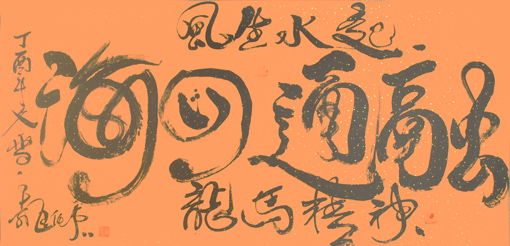 風生水起
融通四海
龍馬精神
丁酉年大雪